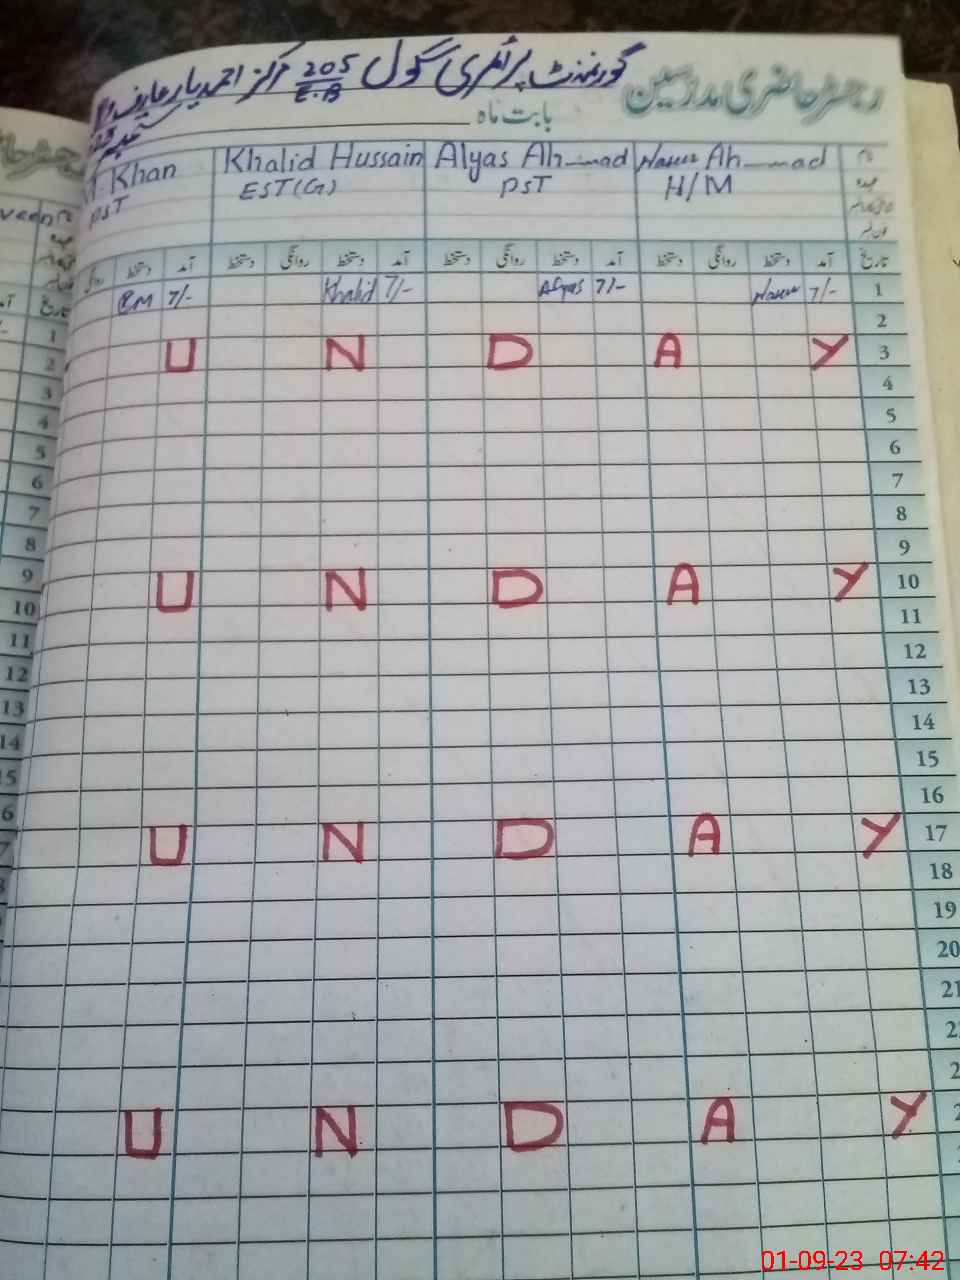 رجسٹر حاضری مدرسین
گورنمنٹ پرائمری سکول 205 E.B مرکز احمد یار عارف والا
بابت ماہ ستمبر
نام Naseer Ah_mad Alyas Ah_mad Khalid Hussain Khan
عہدہ H/M PST EST(G) PST
تاریخ آمد دستخط روانگی دستخط آمد دستخط روانگی دستخط آمد دستخط روانگی دستخط آمد دستخط
1 7/- Naseer 7/- Alyas 7/- Khalid 7/-
2
3 U N D A Y
4
5
6
7
8
9
10 U N D A Y
11
12
13
14
15
16
17 U N D A Y
18
19
20
21
U N D A Y
1
2
3
4
5
6
7
8
9
10
11
12
13
14
01-09-23 07:42